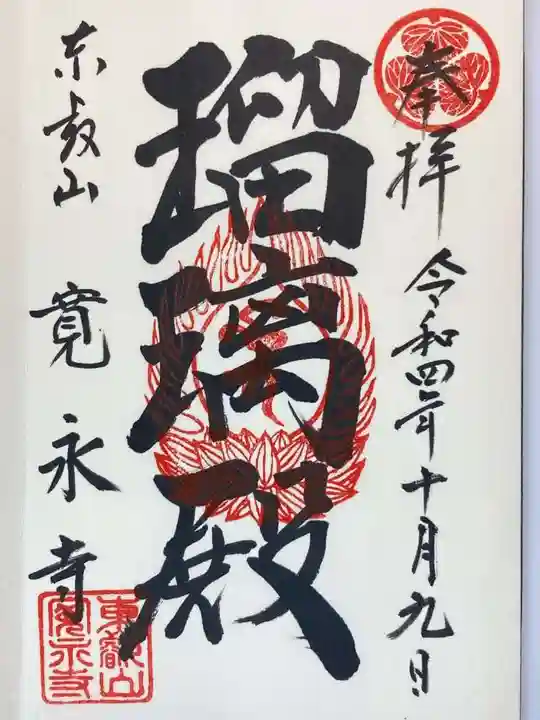 奉拝
令和四年十月九日
瑠璃殿
东叡山
寛永寺
東叡山
寛永寺